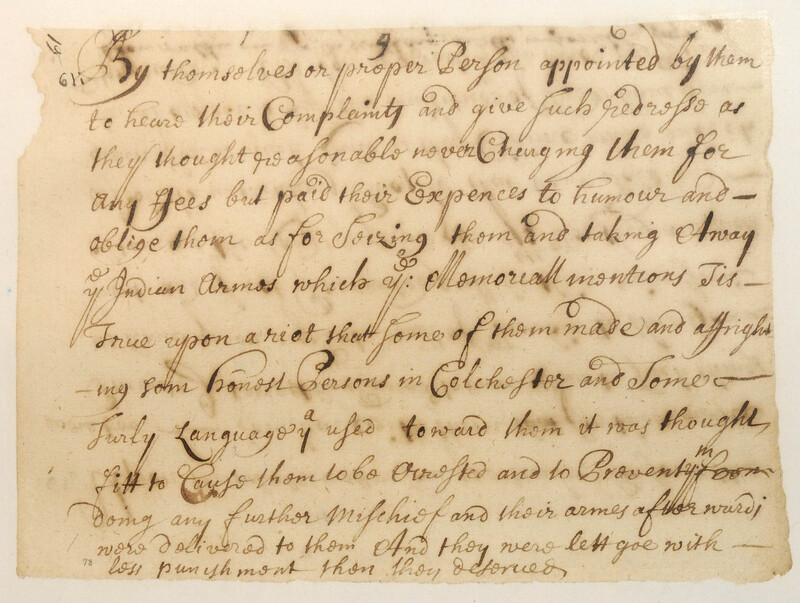 19
61.
9
By themselves or proper Person appointed by them
to heare their Complaints and give such redresse as
they thought reasonable never Charging them for
any ffees but paid their Expences to humour and —
oblige them as for Seizing them and taking Away
yᵉ Indian Armes which yᵉ: Memoriall mentions Tis —
True upon a riot that some of them made and affright
-ing som honest Persons in Colchester and Some —
Surly Language yᵃ used toward them it was thought
fitt to Cause them to be Arrested and to Prevent yᵐ from
doing any further Mischief and their armes afterwards
were delivered to them And they were lett goe with —
less punishment then they deserved
78